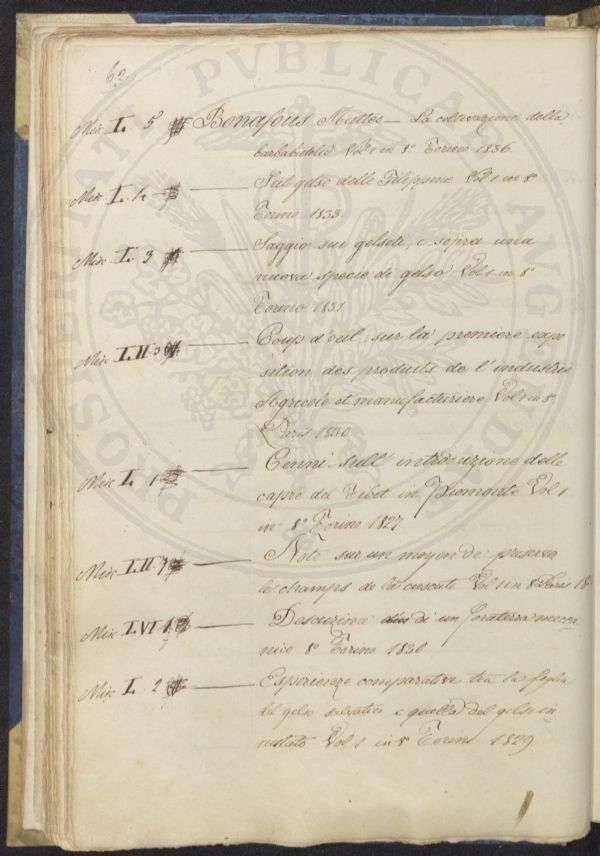 62
Misc I. 5 Bonafous Matteo — La coltivazione della
barbabietola Vol 1 in 8° Torino 1836
Misc I. 4 — Sul gelso delle Filippine Vol 1 in 8°
Torino 1833
Misc I. 3 — Saggio sui gelseti, e sopra una
nuova specie di gelso Vol 1 in 8°
Torino 1831
Misc I. II — Coup d'oeil sur la premiere expo
sition des produits de l'industrie
Agricole et manufacturiere Vol 1 in 8°
Paris 1830
Misc I. 1 — Cenni sull' introduzione delle
capre del Tibet in Piemonte Vol 1
in 8° Torino 1827
Misc I. II — Note sur un moyen de preserver
les champs de la cuscute Vol 1 in 8° Paris
Misc I. VI — Descrizione di un foraterra mecca
nico 8° Torino 1830
Misc I. 2 — Esperienze comparative tra la foglia
del gelso selvatico e quella del gelso in
nestato Vol 1 in 8° Torino 1829
PVBLICA
AVG